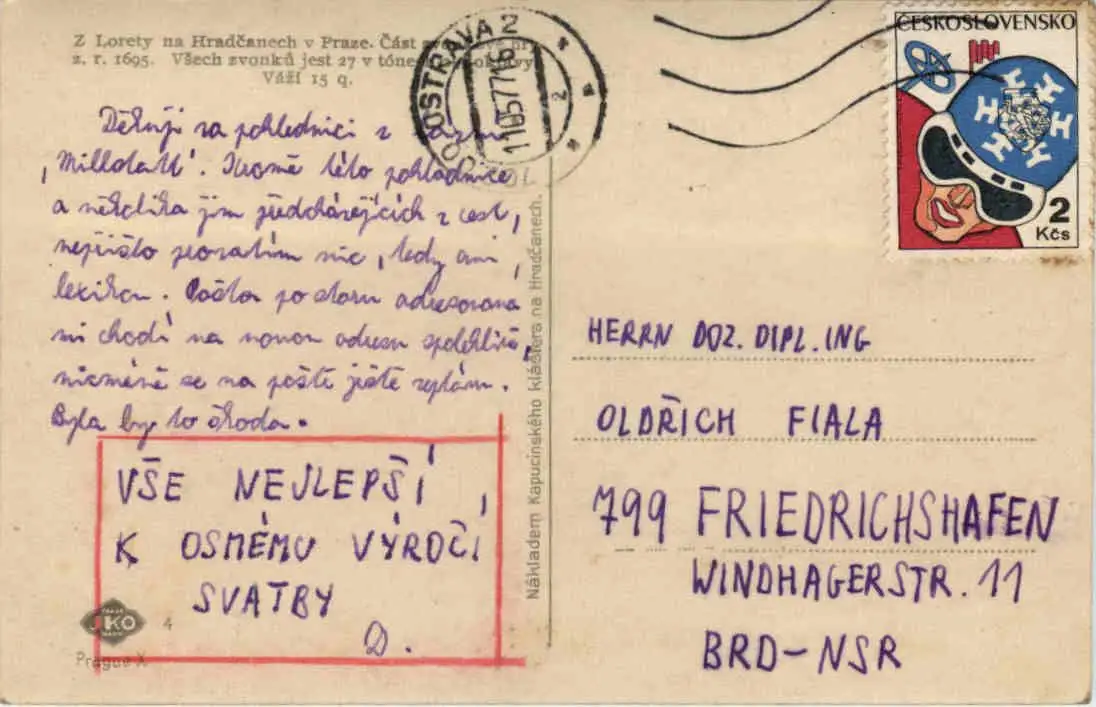 Z Lorety na Hradčanech v Praze. Část
z. r. 1695. Všech zvonků jest 27 v tóne
Váží 15 q.
OSTRAVA 2
11.5.77-18
2
ČESKOSLOVENSKO
2
Kčs
Děkuji za pohlednici z
„Millstatt". Kromě této pohlednice
a několika jim předcházejících z cest,
nepřišlo prozatím nic, tedy ani
lexikon. Pošta po staru adresovaná
mi chodí na novou adresu spolehlivě,
nicméně se na poště ještě zeptám.
Byla by to škoda.
VŠE NEJLEPŠÍ
K OSMÉMU VÝROČÍ
SVATBY
D.
4
Prague X
Nákladem Kapucínského kláštera na Hradčanech.
HERRN DOZ. DIPL. ING
OLDŘICH FIALA
799 FRIEDRICHSHAFEN
WINDHAGERSTR. 11
BRD-NSR